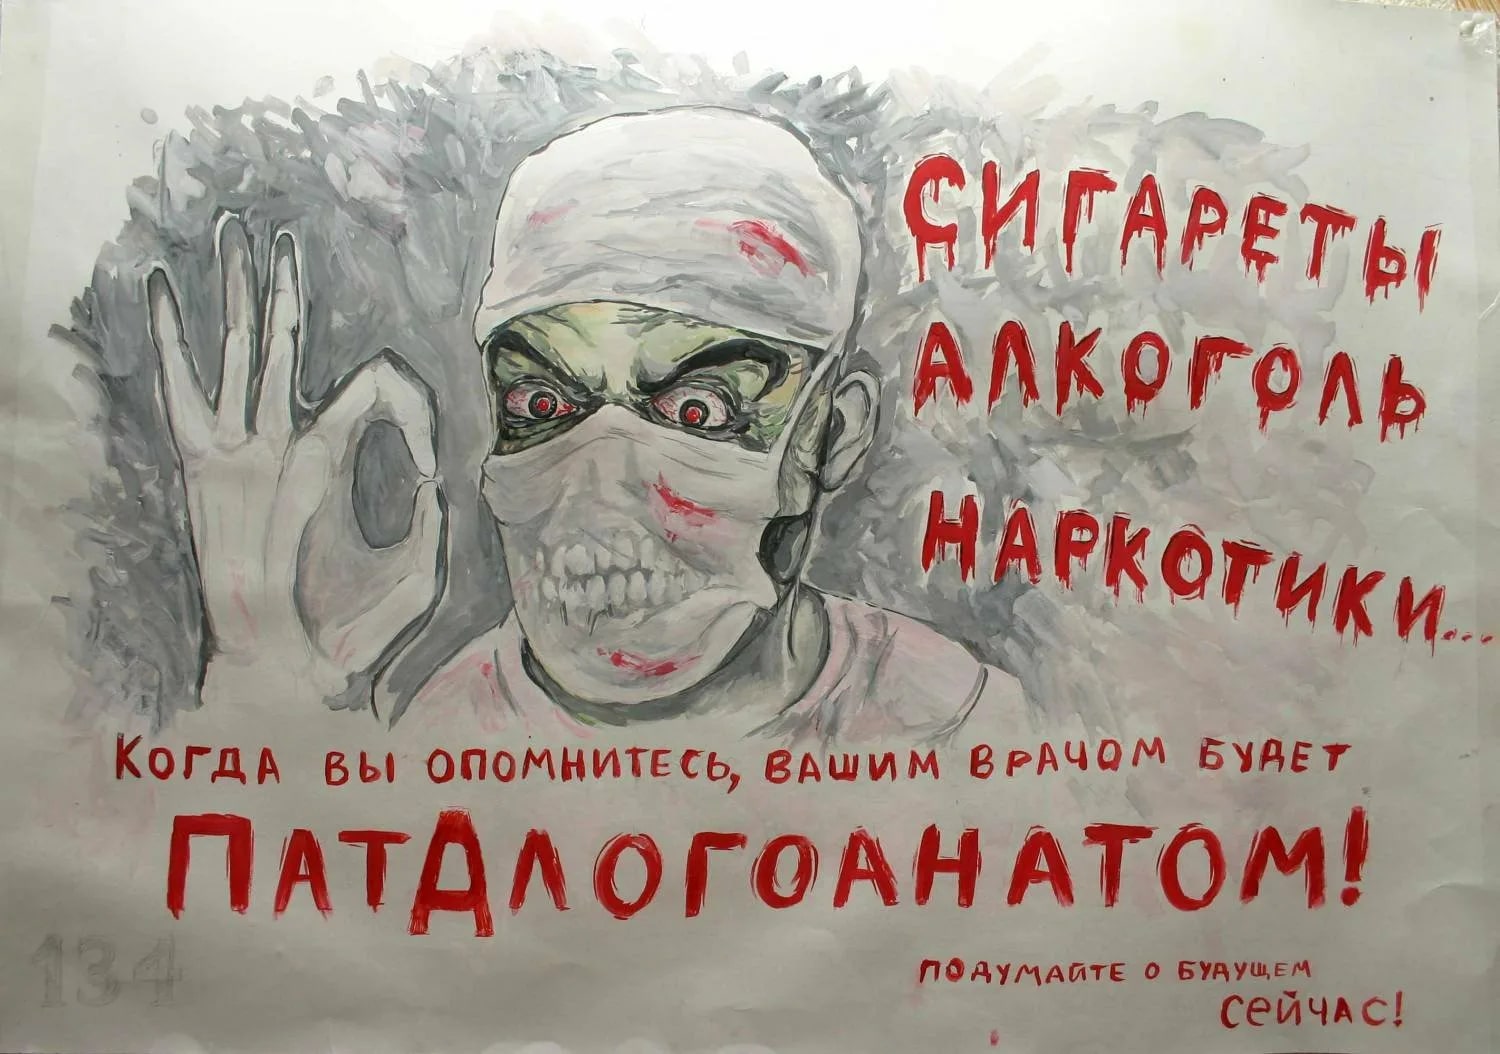 СИГАРЕТЫ
АЛКОГОЛЬ
НАРКОТИКИ...
КОГДА ВЫ ОПОМНИТЕСЬ, ВАШИМ ВРАЧОМ БУДЕТ
ПАТДЛОГОАНАТОМ!
134
ПОДУМАЙТЕ О БУДУЩЕМ
СЕЙЧАС!